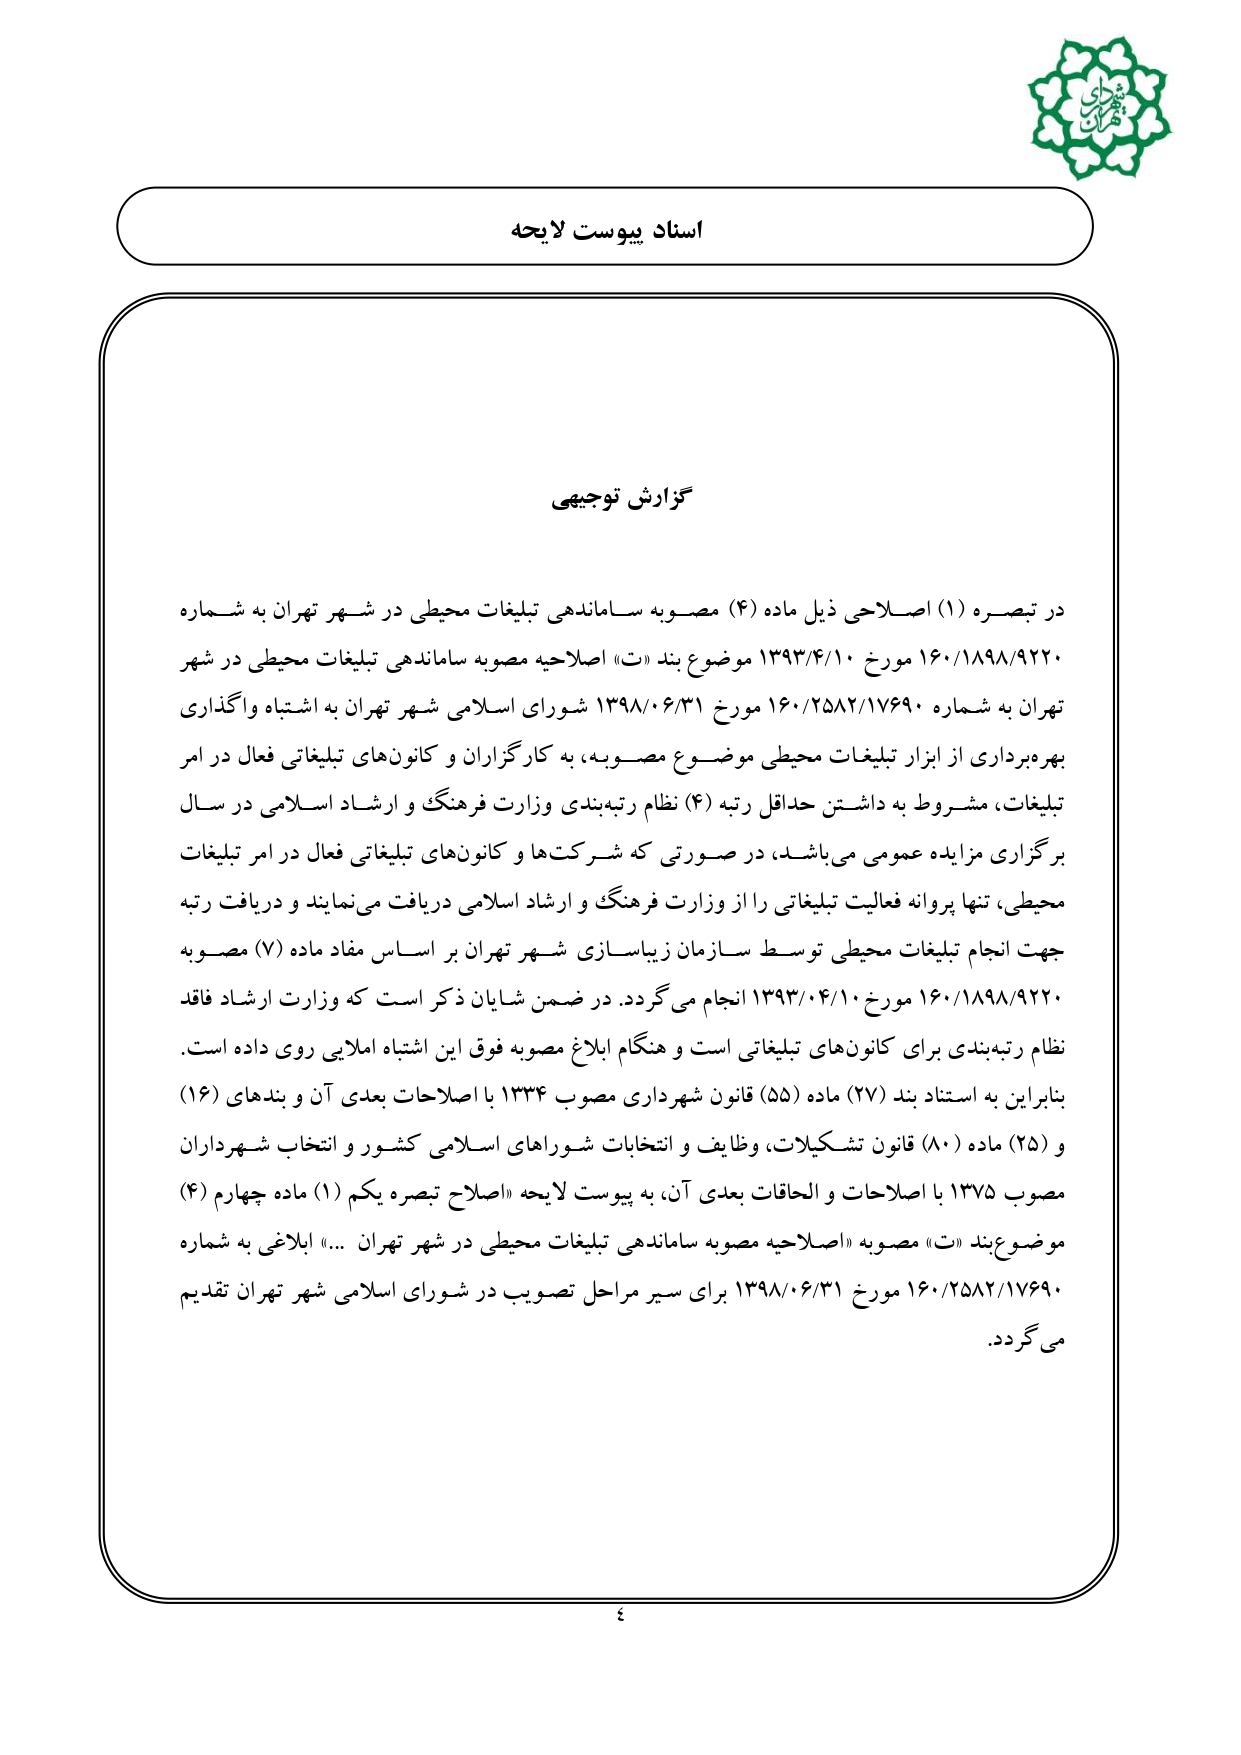 شهرداری تهران
اسناد پیوست لایحه
گزارش توجیهی
در تبصره (۱) اصلاحی ذیل ماده (۴) مصوبه ساماندهی تبلیغات محیطی در شهر تهران به شماره
۱۶۰/۱۸۹۸/۹۲۲۰ مورخ ۱۳۹۳/۴/۱۰ موضوع بند «ت» اصلاحیه مصوبه ساماندهی تبلیغات محیطی در شهر
تهران به شماره ۱۶۰/۲۵۸۲/۱۷۶۹۰ مورخ ۱۳۹۸/۰۶/۳۱ شورای اسلامی شهر تهران به اشتباه واگذاری
بهره‌برداری از ابزار تبلیغات محیطی موضوع مصوبه، به کارگزاران و کانون‌های تبلیغاتی فعال در امر
تبلیغات، مشروط به داشتن حداقل رتبه (۴) نظام رتبه‌بندی وزارت فرهنگ و ارشاد اسلامی در سال
برگزاری مزایده عمومی می‌باشد، در صورتی که شرکت‌ها و کانون‌های تبلیغاتی فعال در امر تبلیغات
محیطی، تنها پروانه فعالیت تبلیغاتی را از وزارت فرهنگ و ارشاد اسلامی دریافت می‌نمایند و دریافت رتبه
جهت انجام تبلیغات محیطی توسط سازمان زیباسازی شهر تهران بر اساس مفاد ماده (۷) مصوبه
۱۶۰/۱۸۹۸/۹۲۲۰ مورخ۱۳۹۳/۰۴/۱۰ انجام می‌گردد. در ضمن شایان ذکر است که وزارت ارشاد فاقد
نظام رتبه‌بندی برای کانون‌های تبلیغاتی است و هنگام ابلاغ مصوبه فوق این اشتباه املایی روی داده است.
بنابراین به استناد بند (۲۷) ماده (۵۵) قانون شهرداری مصوب ۱۳۳۴ با اصلاحات بعدی آن و بندهای (۱۶)
و (۲۵) ماده (۸۰) قانون تشکیلات، وظایف و انتخابات شوراهای اسلامی کشور و انتخاب شهرداران
مصوب ۱۳۷۵ با اصلاحات و الحاقات بعدی آن، به پیوست لایحه «اصلاح تبصره یکم (۱) ماده چهارم (۴)
موضوع‌بند «ت» مصوبه «اصلاحیه مصوبه ساماندهی تبلیغات محیطی در شهر تهران ...» ابلاغی به شماره
۱۶۰/۲۵۸۲/۱۷۶۹۰ مورخ ۱۳۹۸/۰۶/۳۱ برای سیر مراحل تصویب در شورای اسلامی شهر تهران تقدیم
می‌گردد.
٤